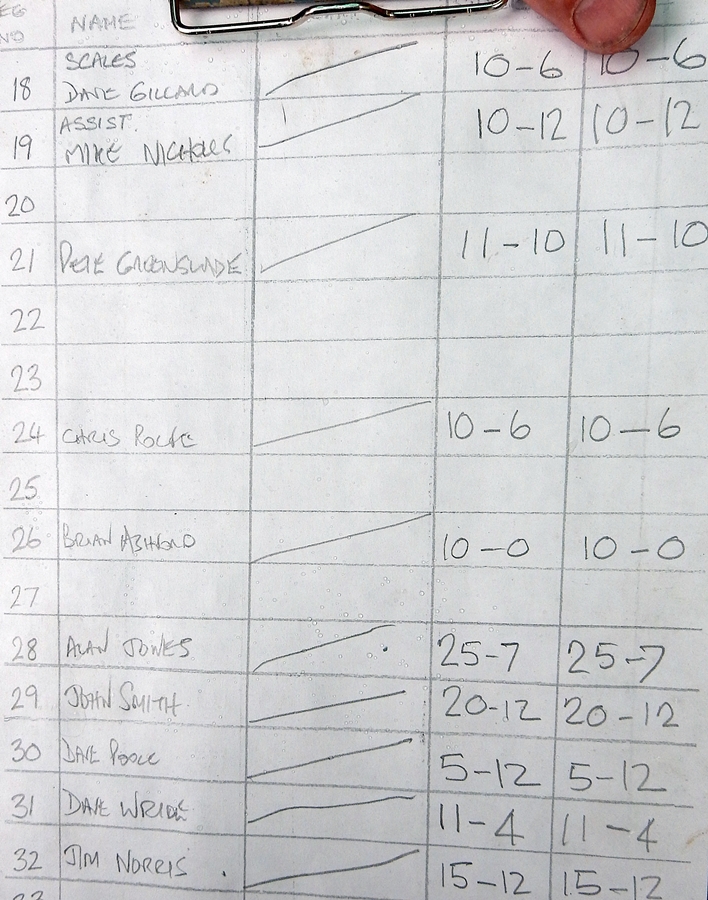 EG
NO NAME
SCALES
18 DAVE GILLARD 10-6 10-6
ASSIST.
19 MIKE NICHOLLS 10-12 10-12
20
21 PETE GREENSLADE 11-10 11-10
22
23
24 CHRIS 10-6 10-6
25
26 BRIAN ASHFORD 10-0 10-0
27
28 ALAN JONES 25-7 25-7
29 JOHN SMITH 20-12 20-12
30 DAVE POOLE 5-12 5-12
31 DAVE 11-4 11-4
32 JIM NORRIS 15-12 15-12
33